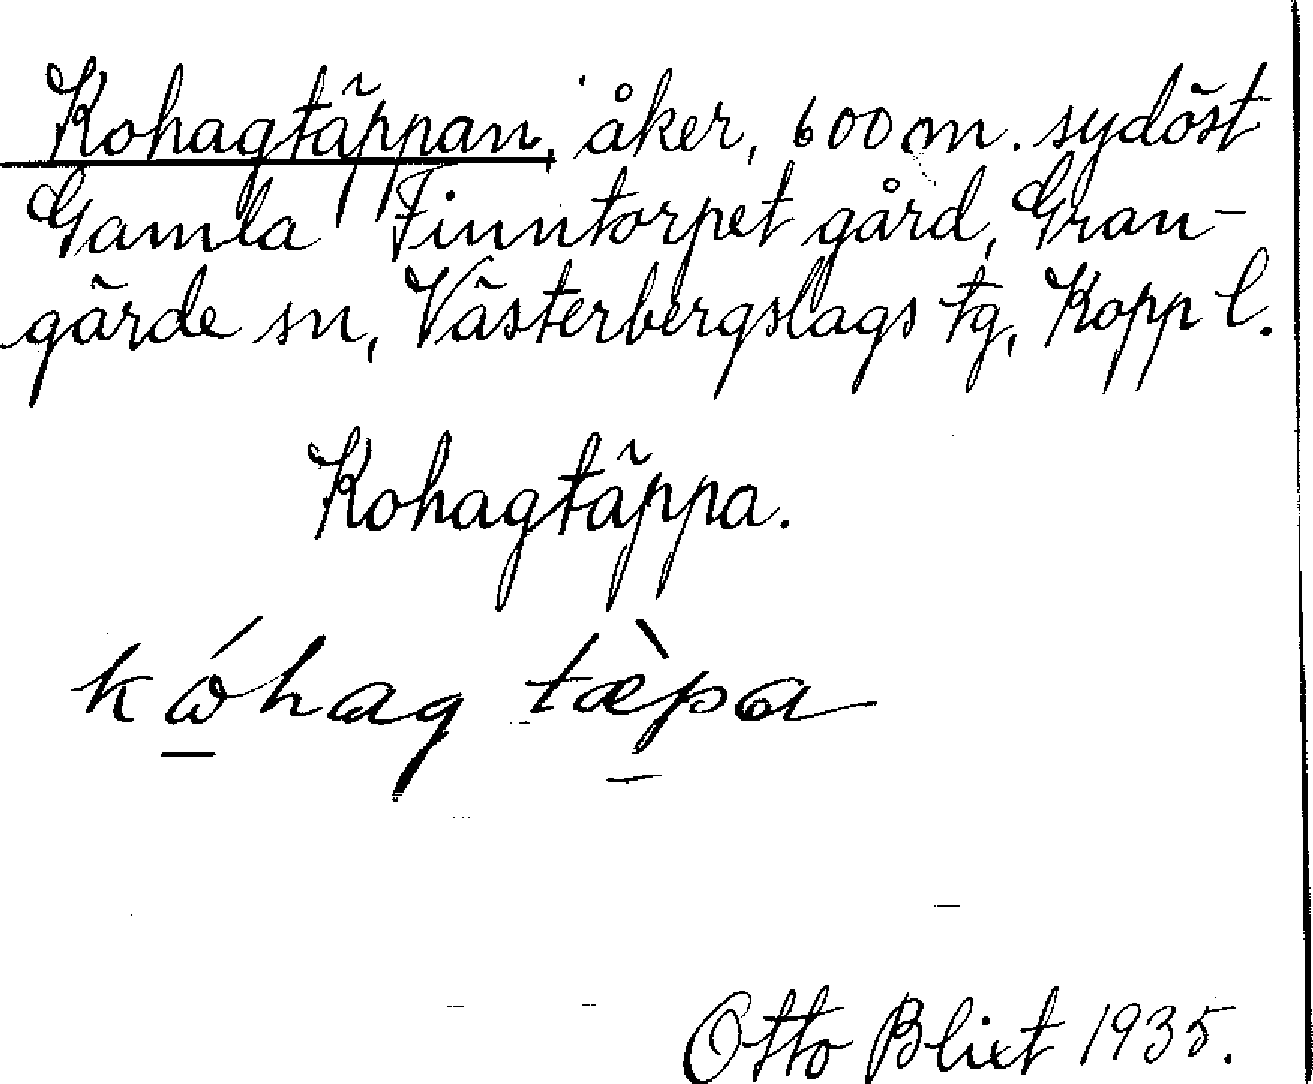 Kohagtäppan, åker, 600 m. sydöst
Gamla Finntorpet gård, Gran-
gärde sn, Västerbergslags tg, Kopp l.
Kohagtäppa.
kώhag tæ̀pa
Otto Blixt 1935.